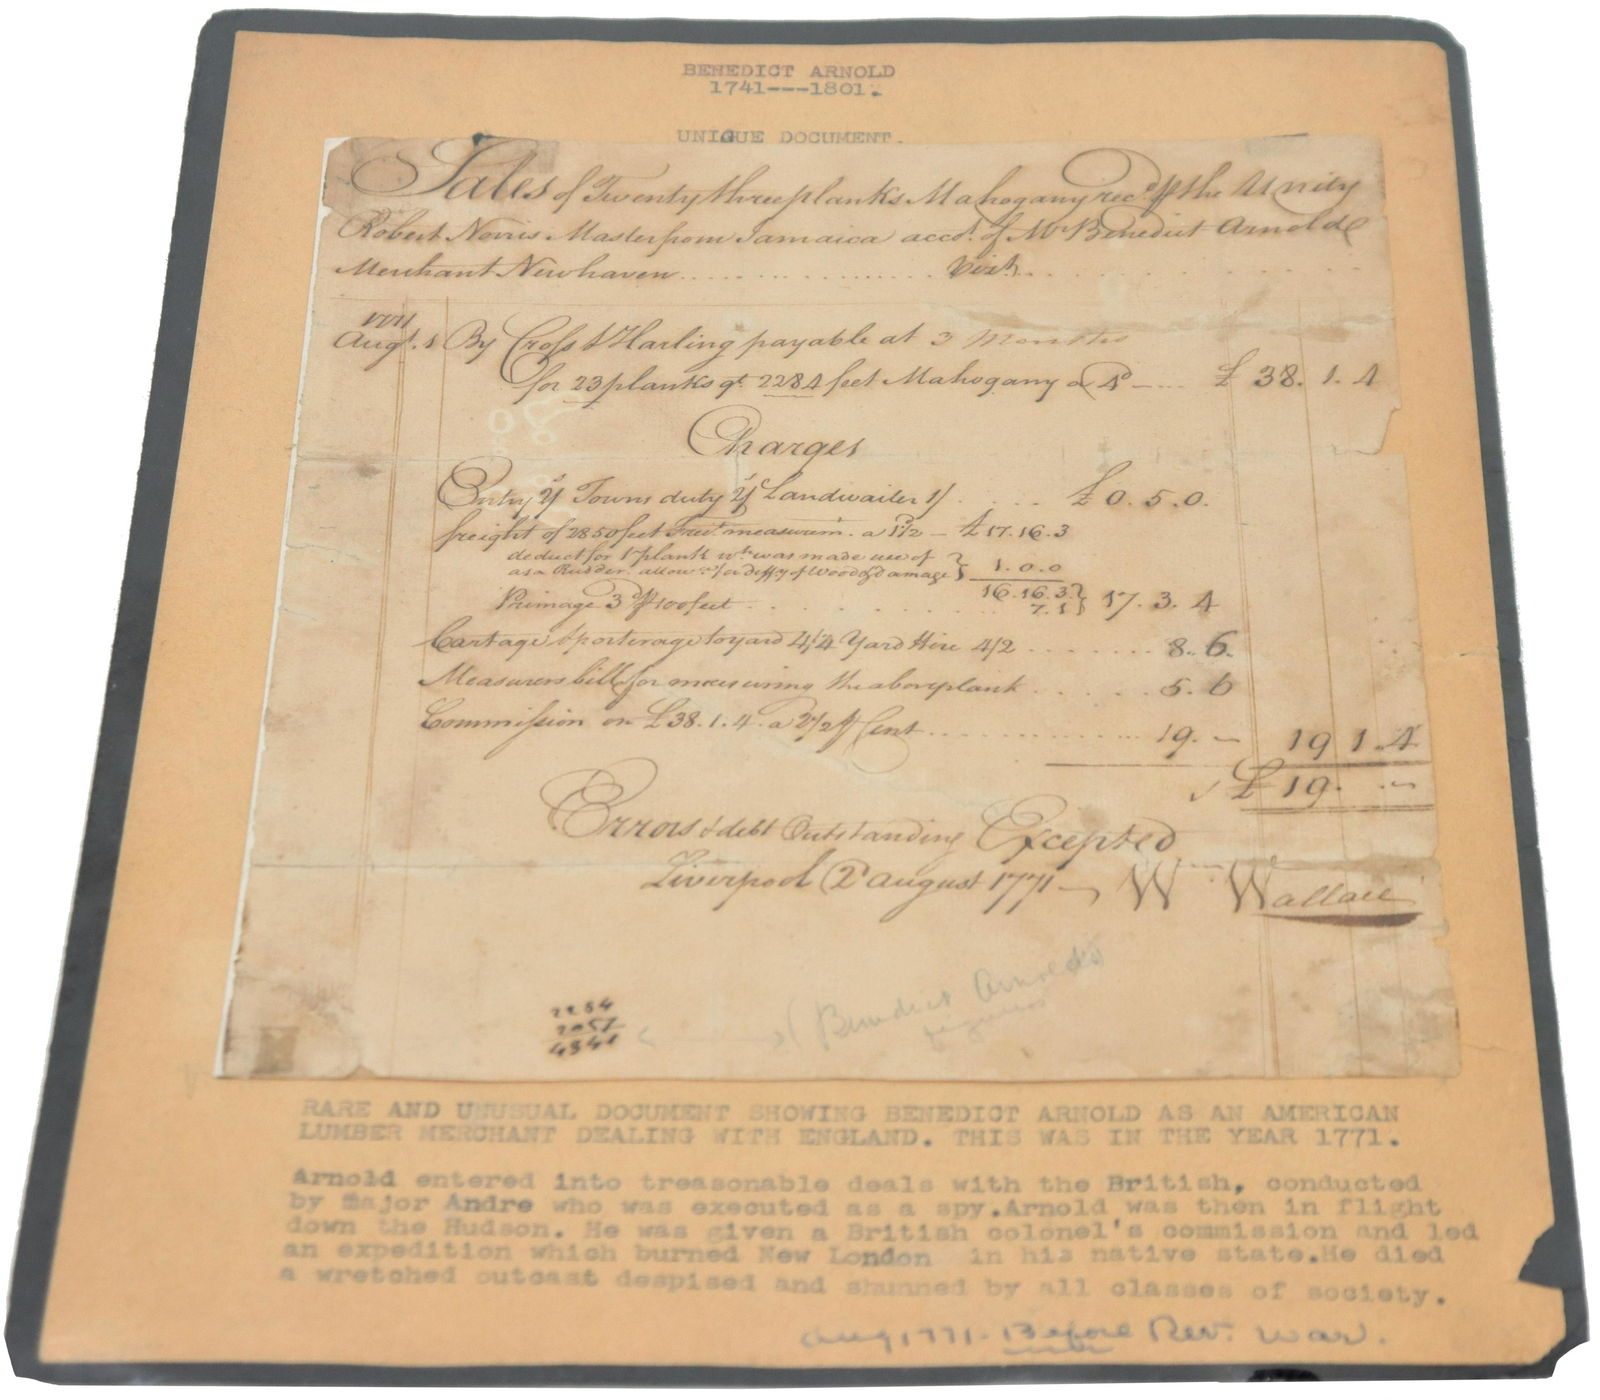 BENEDICT ARNOLD
1741---1801.
UNIQUE DOCUMENT.
Sales of Twenty three planks Mahogany rec.d ⅌ the Unity
Robert Norris Master from Jamaica acco.t of Mr Benedict Arnold
Merchant Newhaven.................. Vizt.
1771
Aug.t 1 By Cross & Harling payable at 3 Months
for 23 planks q.t 2284 feet Mahogany a 4d — ... £ 38. 1. 4
Charges
Entry 2/ Towns duty 2/ Landwaiter 1/ . . . . £ 0. 5. 0.
freight of 2850 feet measurm. a 1½ — £ 17.16.3
deduct for 1 plank wch was made use of
as a Rudder allow for diff.y of Wood & Damage } 1.0.0
16.16.3
Primage 3d ⅌ 100 feet . . . . . . . 7.1 } 17. 3. 4
Cartage & porterage to yard 4/4 Yard Hire 4/2 . . . . . . . 8. 6.
Measurers bill for measuring the above plank . . . . . . 5. 6
Commission on £38.1.4. a 2½ ⅌ Cent.............. 19. — 19 1. 4
£ 19. . —
Errors & debt Outstanding Excepted
Liverpool 2d august 1771 — W Wallace
2284
2057
4341
(Benedict Arnolds
figures
RARE AND UNUSUAL DOCUMENT SHOWING BENEDICT ARNOLD AS AN AMERICAN
LUMBER MERCHANT DEALING WITH ENGLAND. THIS WAS IN THE YEAR 1771.
Arnold entered into treasonable deals with the British, conducted
by Major Andre who was executed as a spy.Arnold was then in flight
down the Hudson. He was given a British colonel's commission and led
an expedition which burned New London in his native state.He died
a wretched outcast despised and shunned by all classes of society.
Aug 1771 - Before Rev. War.